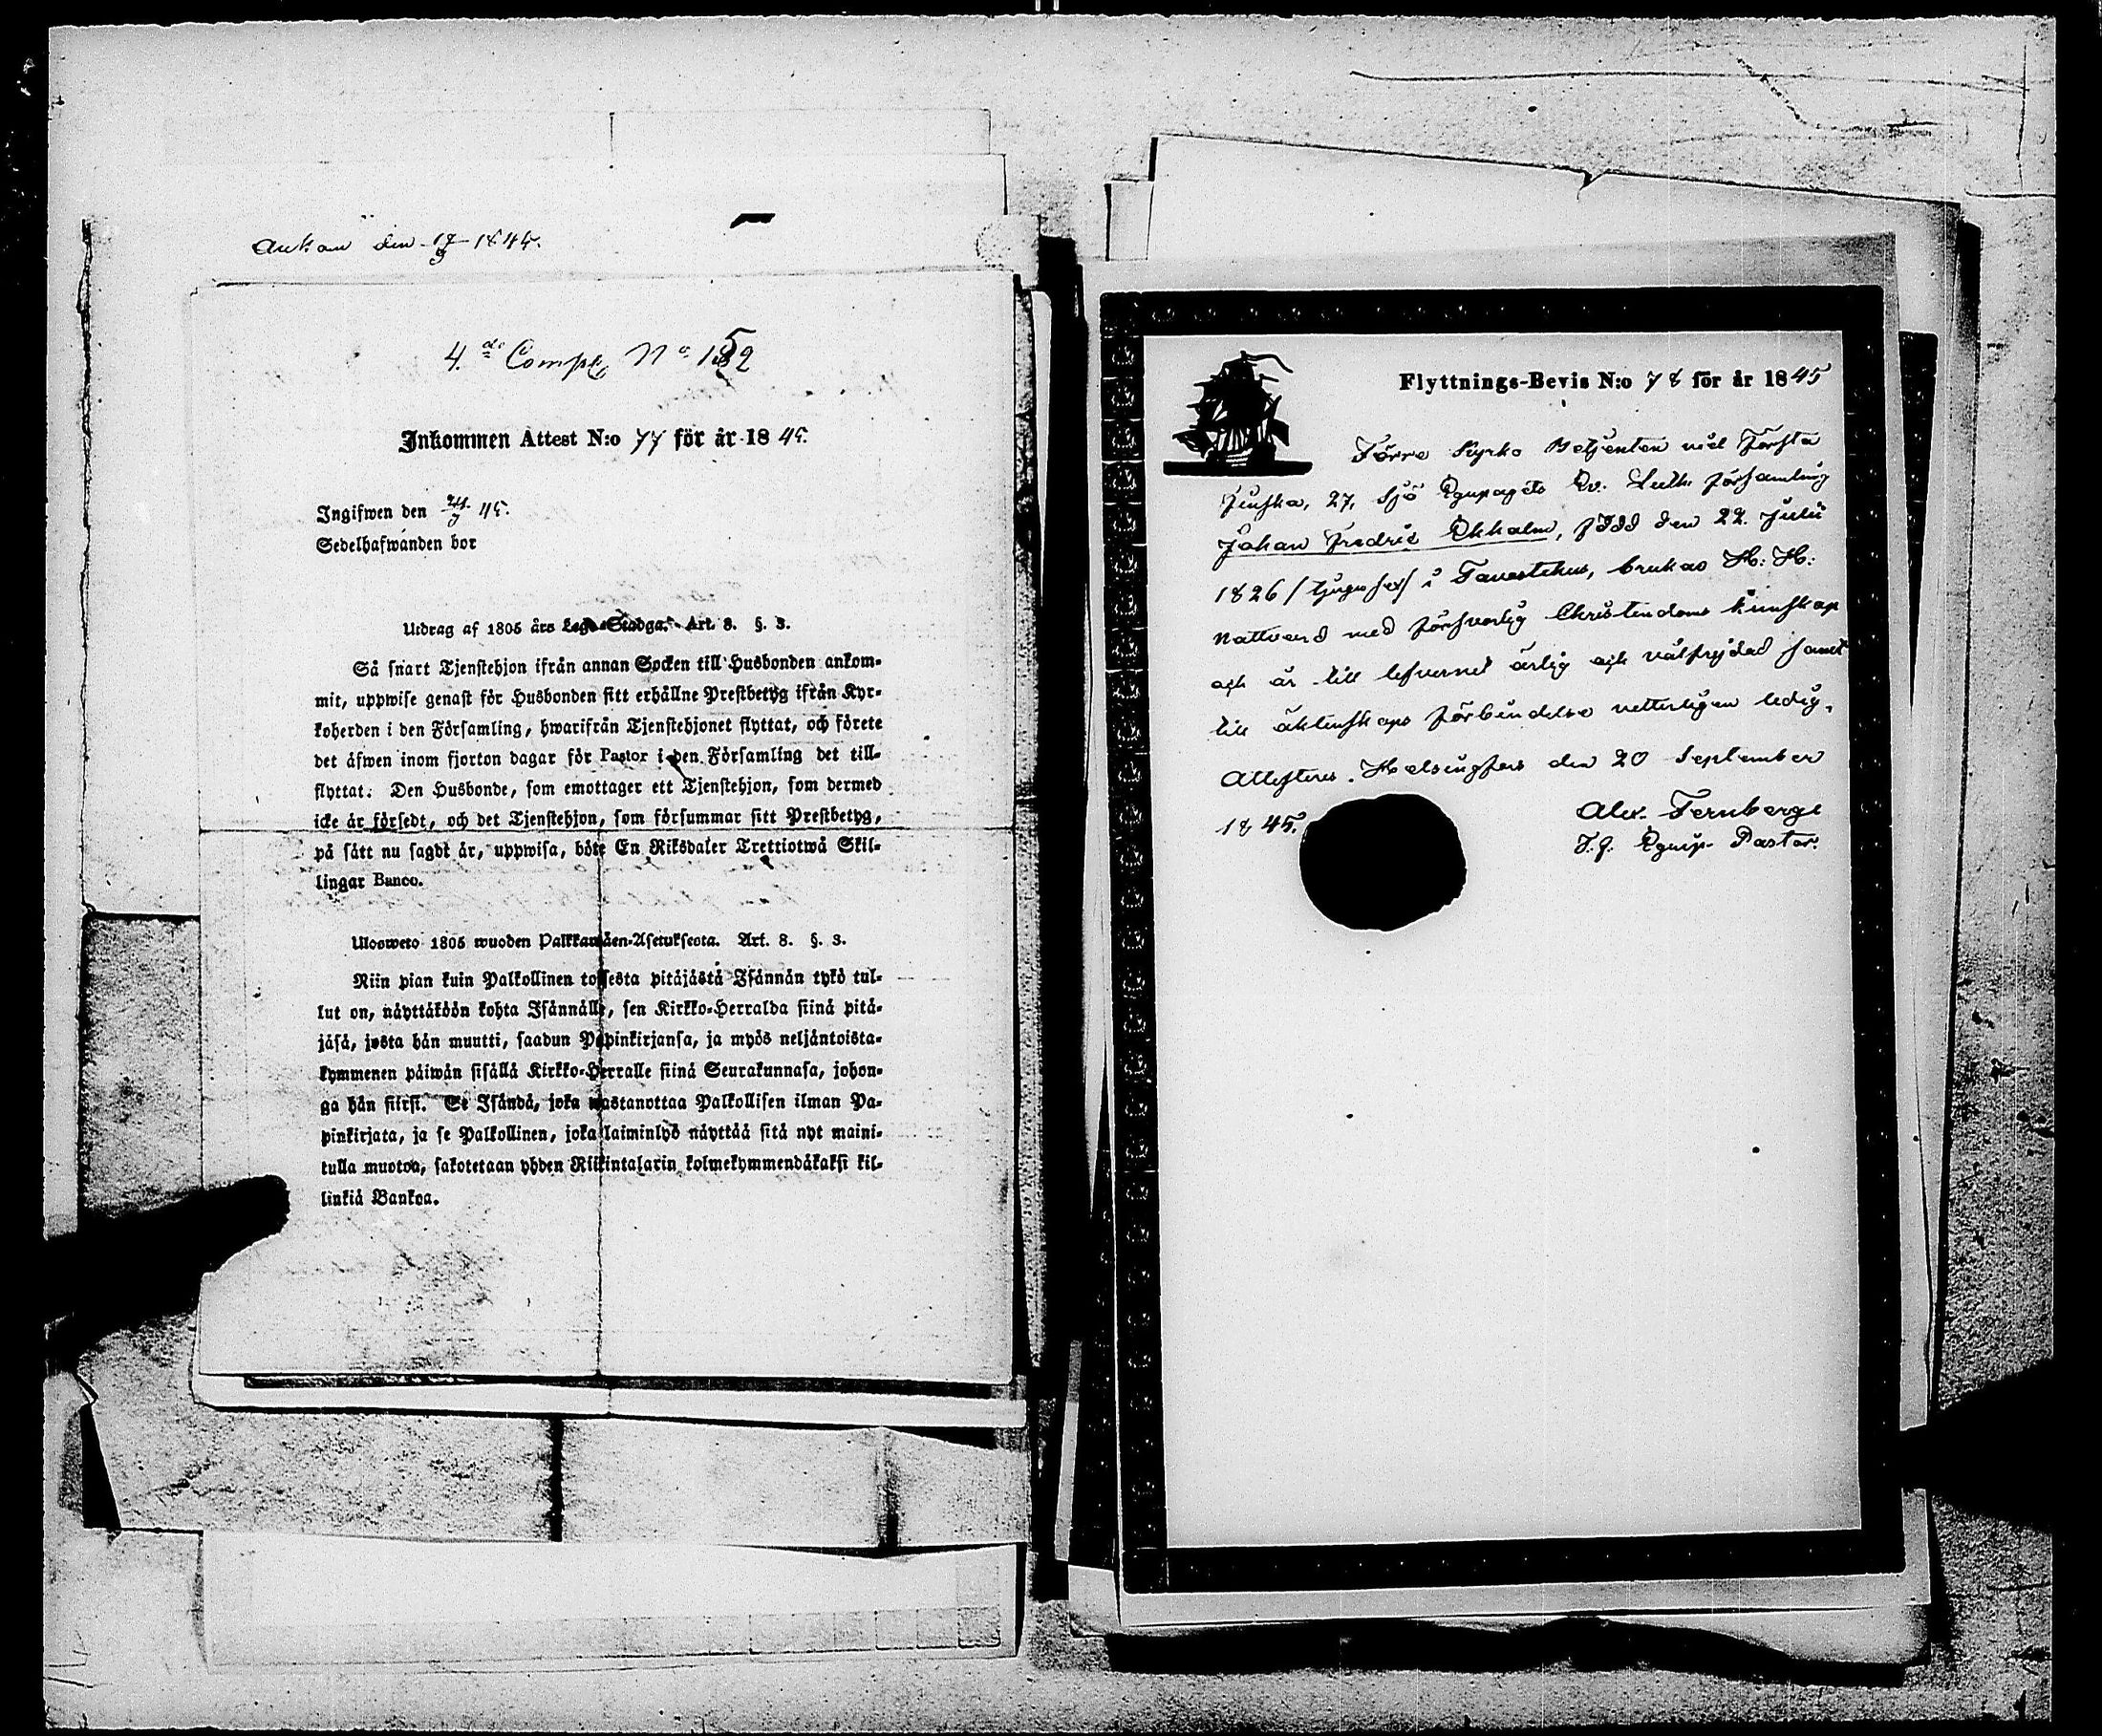 Ankom den 17/9 1845.
4.de Comp. No 152
Inkommen Attest N:o 77 för år 1845.
Ingifwen den 24/9 45.
Sedelhafwanden bor
Utdrag af 1805 års Lego-Stadga. Art. 8. §. 3.
Så snart Tjenstehjon ifrån annan Socken till Husbonden ankom-
mit, uppwise genast för Husbonden sitt erhållne Prestbetyg ifrån Kyr-
koherden i den Församling, hwarifrån Tjenstehjonet flyttat, och förete
det äfwen inom fjorton dagar för Pastor i den Församling det till-
flyttat. Den Husbonde, som emottager ett Tjenstehjon, som dermed
icke är försedt, och det Tjenstehjon, som försummar sitt Prestbetyg,
på sätt nu sagdt är, uppwisa, böte En Riksdaler Trettiotwå Skil-
lingar Banco.
Ulosweto 1805 wuoden Palkkawäen-Asetuksesta. Art. 8. §. 3.
Niin pian kuin Palkollinen toisesta pitäjästä Isännän tykö tul-
lut on, näyttäköön kohta Isännälle, sen Kirkko-Herralda siinä pitä-
jäsä, josta hän muutti, saadun Papinkirjansa, ja myös neljäntoista-
kymmenen päiwän sisällä Kirkko-Herralle siinä Seurakunnasa, johon-
ga hän siirsi. Se Isändä, joka wastanottaa Palkollisen ilman Pa-
pinkirjata, ja se Palkollinen, joka laiminlyö näyttää sitä nyt maini-
tulla muotoa, sakotetaan yhden Riikintalarin kolmekymmendäkaksi kil-
linkiä Bankoa.
Flyttnings-Bevis N:o 78 för år 1845
Förre Kyrko Betjenten vid Första
Finska, 27, Sjö Equipagets Ev. Luth. församling
Johan Fredric Ekholm, född den 22. Julii
1826 /tjugusex/ i Tavastehus, brukas H: H:
Nattvard med försvarlig Christendoms kunskap
och är till lefvernet ärlig och välfrejdad samt
till äktenskaps förbindelse vetterligen ledig.
Attesteras. Helsingfors den 20 September
1845.
Alex. Fernberg
T.f. Equip. Pastor.